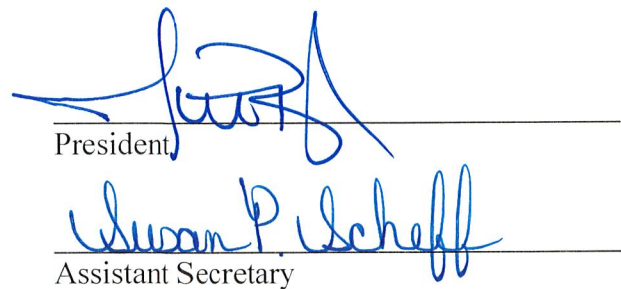 President
Susan P. Scheff
Assistant Secretary